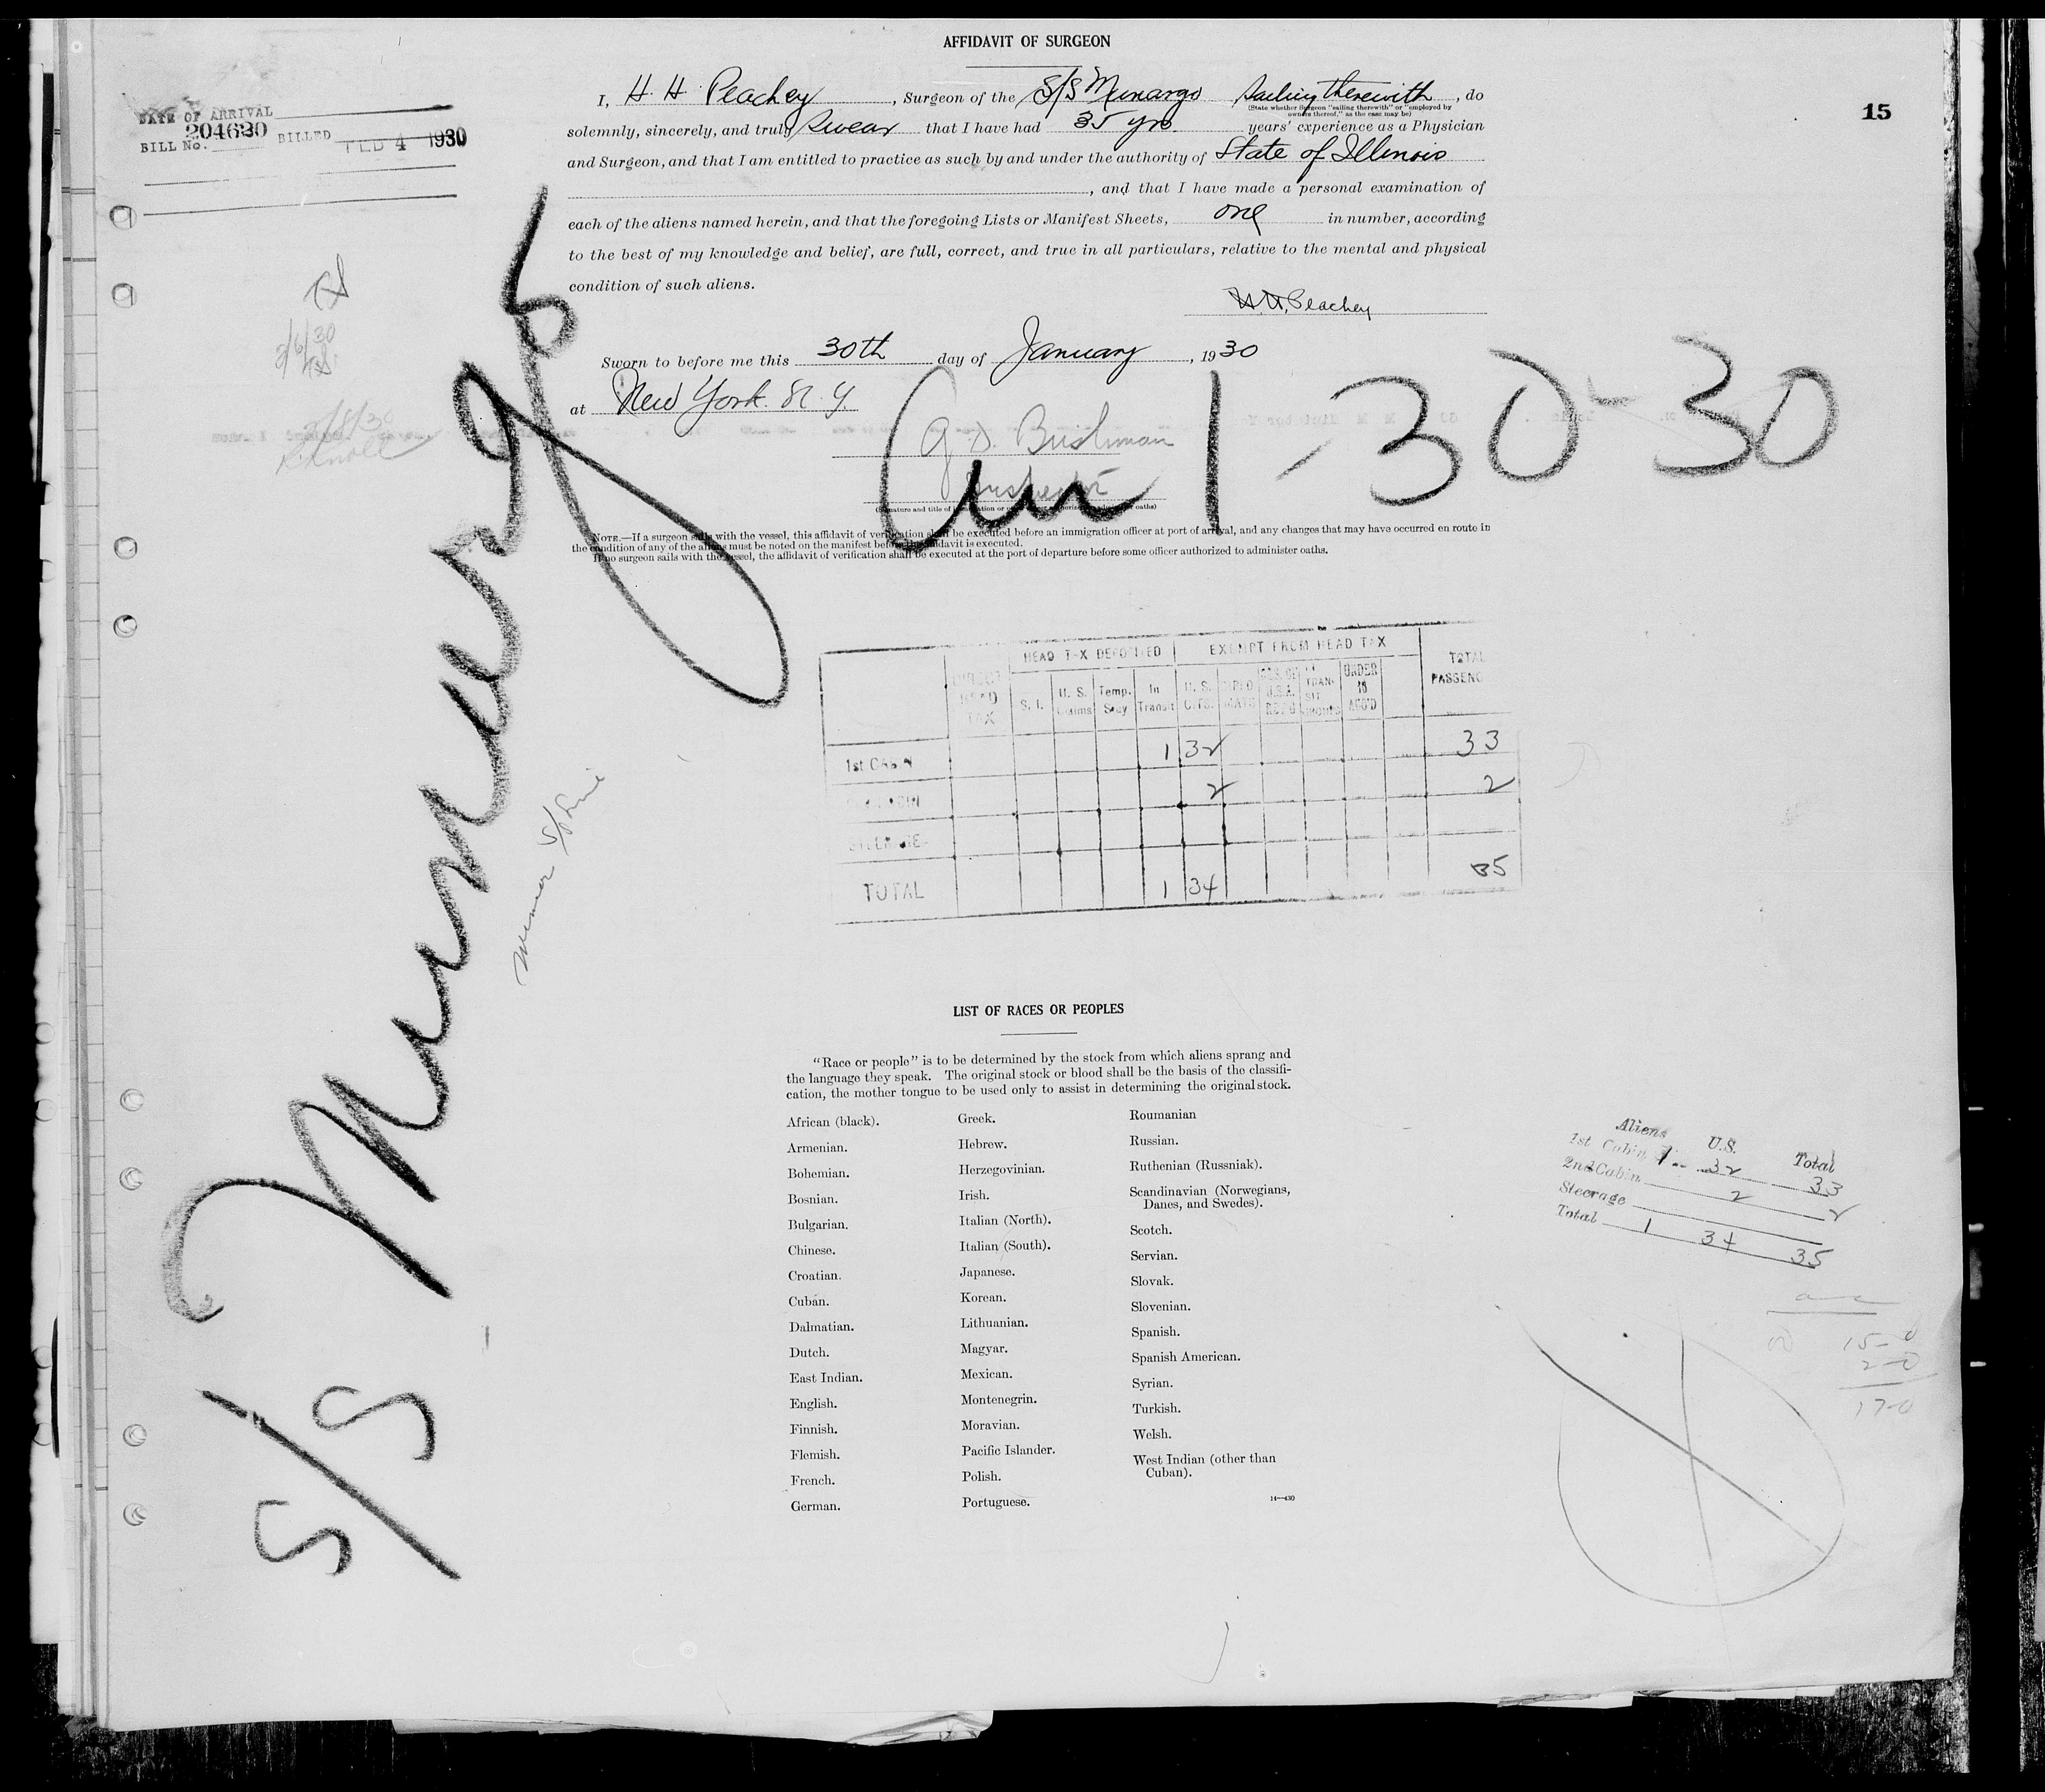 AFFIDAVIT OF SURGEON
15
I, H. H. Peachey, Surgeon of the S/S Munargo Sailing therewith, do
(State whether Surgeon "sailing therewith" or "employed by
owners thereof," as the case may be)
solemnly, sincerely, and truly swear that I have had 35 yrs. years' experience as a Physician
and Surgeon, and that I am entitled to practice as such by and under the authority of State of Illinois
, and that I have made a personal examination of
each of the aliens named herein, and that the foregoing Lists or Manifest Sheets, one in number, according
to the best of my knowledge and belief, are full, correct, and true in all particulars, relative to the mental and physical
condition of such aliens.
H. H. Peachey
Sworn to before me this 30th day of January, 1930
at New York. N. Y.
Bushman
Inspector
(Signature and title of oaths)
NOTE.—If a surgeon sails with the vessel, this affidavit of verification shall be executed before an immigration officer at port of arrival, and any changes that may have occurred en route in
the condition of any of the aliens must be noted on the manifest before the affidavit is executed.
If no surgeon sails with the vessel, the affidavit of verification shall be executed at the port of departure before some officer authorized to administer oaths.
DATE OF ARRIVAL
204630
BILL No. BILLED FEB 4 1930
3/6/30
S/S Munargo
Arr 1-30-30
HEAD TAX DEPOSITED EXEMPT FROM HEAD TAX
DIRECT HEAD TAX
S. I.
U. S. Claims
Temp. Stay
In Transit
U. S. CITS.
UNDER 16 ACC'D
TOTAL PASSENG
1st CABIN 1 32 33
2 2
STEERAGE
TOTAL 1 34 35
LIST OF RACES OR PEOPLES
"Race or people" is to be determined by the stock from which aliens sprang and
the language they speak. The original stock or blood shall be the basis of the classifi-
cation, the mother tongue to be used only to assist in determining the original stock.
African (black).
Armenian.
Bohemian.
Bosnian.
Bulgarian.
Chinese.
Croatian.
Cuban.
Dalmatian.
Dutch.
East Indian.
English.
Finnish.
Flemish.
French.
German.
Greek.
Hebrew.
Herzegovinian.
Irish.
Italian (North).
Italian (South).
Japanese.
Korean.
Lithuanian.
Magyar.
Mexican.
Montenegrin.
Moravian.
Pacific Islander.
Polish.
Portuguese.
Roumanian
Russian.
Ruthenian (Russniak).
Scandinavian (Norwegians,
Danes, and Swedes).
Scotch.
Servian.
Slovak.
Slovenian.
Spanish.
Spanish American.
Syrian.
Turkish.
Welsh.
West Indian (other than
Cuban).
14—430
Aliens U.S. Total
1st Cabin 1 32 33
2nd Cabin 2 2
Steerage
Total 1 34 35
15-0
2-0
17-0